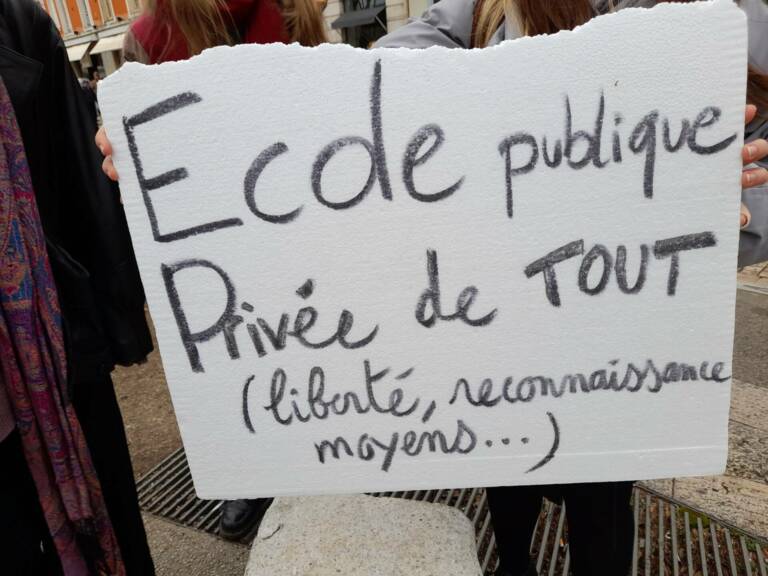 Ecole publique
Privée de TOUT
(liberté, reconnaissance
moyens...)